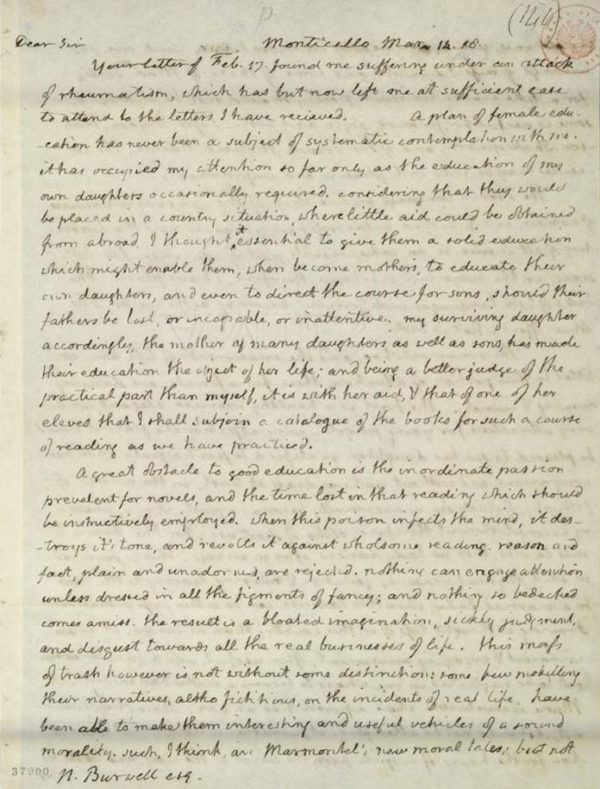 (144)
Dear Sir Monticello Mar. 14. 18.
Your letter of Feb. 17. found me suffering under an attack
of rheumatism, which has but now left me at sufficient ease
to attend to the letters I have recieved. A plan of female edu-
-cation has never been a subject of systematic contemplation with me.
it has occupied my attention so far only as the education of my
own daughters occasionally required. considering that they would
be placed in a country situation, where little aid could be obtained
from abroad, I thought it essential to give them a solid education
which might enable them, when become mothers, to educate their
own daughters, and even to direct the course for sons, should their
fathers be lost, or incapable, or inattentive. my surviving daughter
accordingly, the mother of many daughters as well as sons, has made
their education the object of her life; and being a better judge of the
practical part than myself, it is with her aid, & that of one of her
eleves that I shall subjoin a catalogue of the books for such a course
of reading as we have practised.
A great obstacle to good education is the inordinate passion
prevalent for novels, and the time lost in that reading which should
be instructively employed. when this poison infects the mind, it des-
-troys it's tone, and revolts it against wholsome reading. reason and
fact, plain and unadorned, are rejected. nothing can engage attention
unless dressed in all the figments of fancy; and nothing so bedecked
comes amiss. the result is a bloated imagination, sickly judgment,
and disgust towards all the real businesses of life. this mass
of trash however is not without some distinction: some few modelling
their narratives, altho fictitious, on the incidents of real life, have
been able to make them interesting and useful vehicles of a sound
morality. such, I think, are Marmontel's new moral tales; but not
37900 N. Burwell esq.